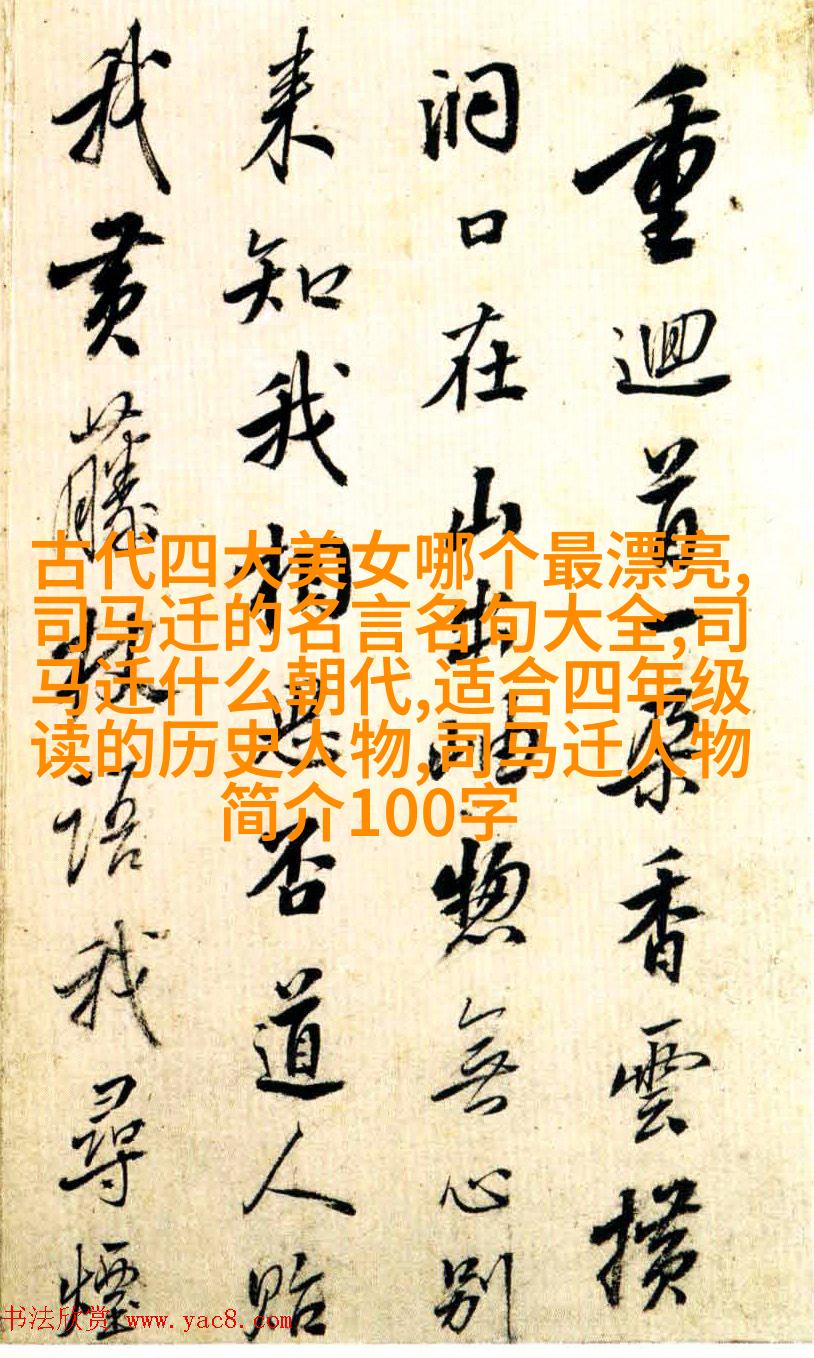 重迴首一朵香雲横
洞口在山出岫惣無心别
来知我相思否道人貽
我黄藤語我尋煙
古代四大美女哪个最漂亮,
司马迁的名言名句大全,司
马迁什么朝代,适合四年级
读的历史人物,司马迁人物
简介100字
书法欣赏 www.yac8.com